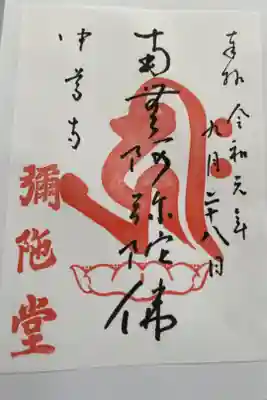 奉拝 令和元年
九月二十八日
南無阿弥陀佛
中尊寺
彌陀堂